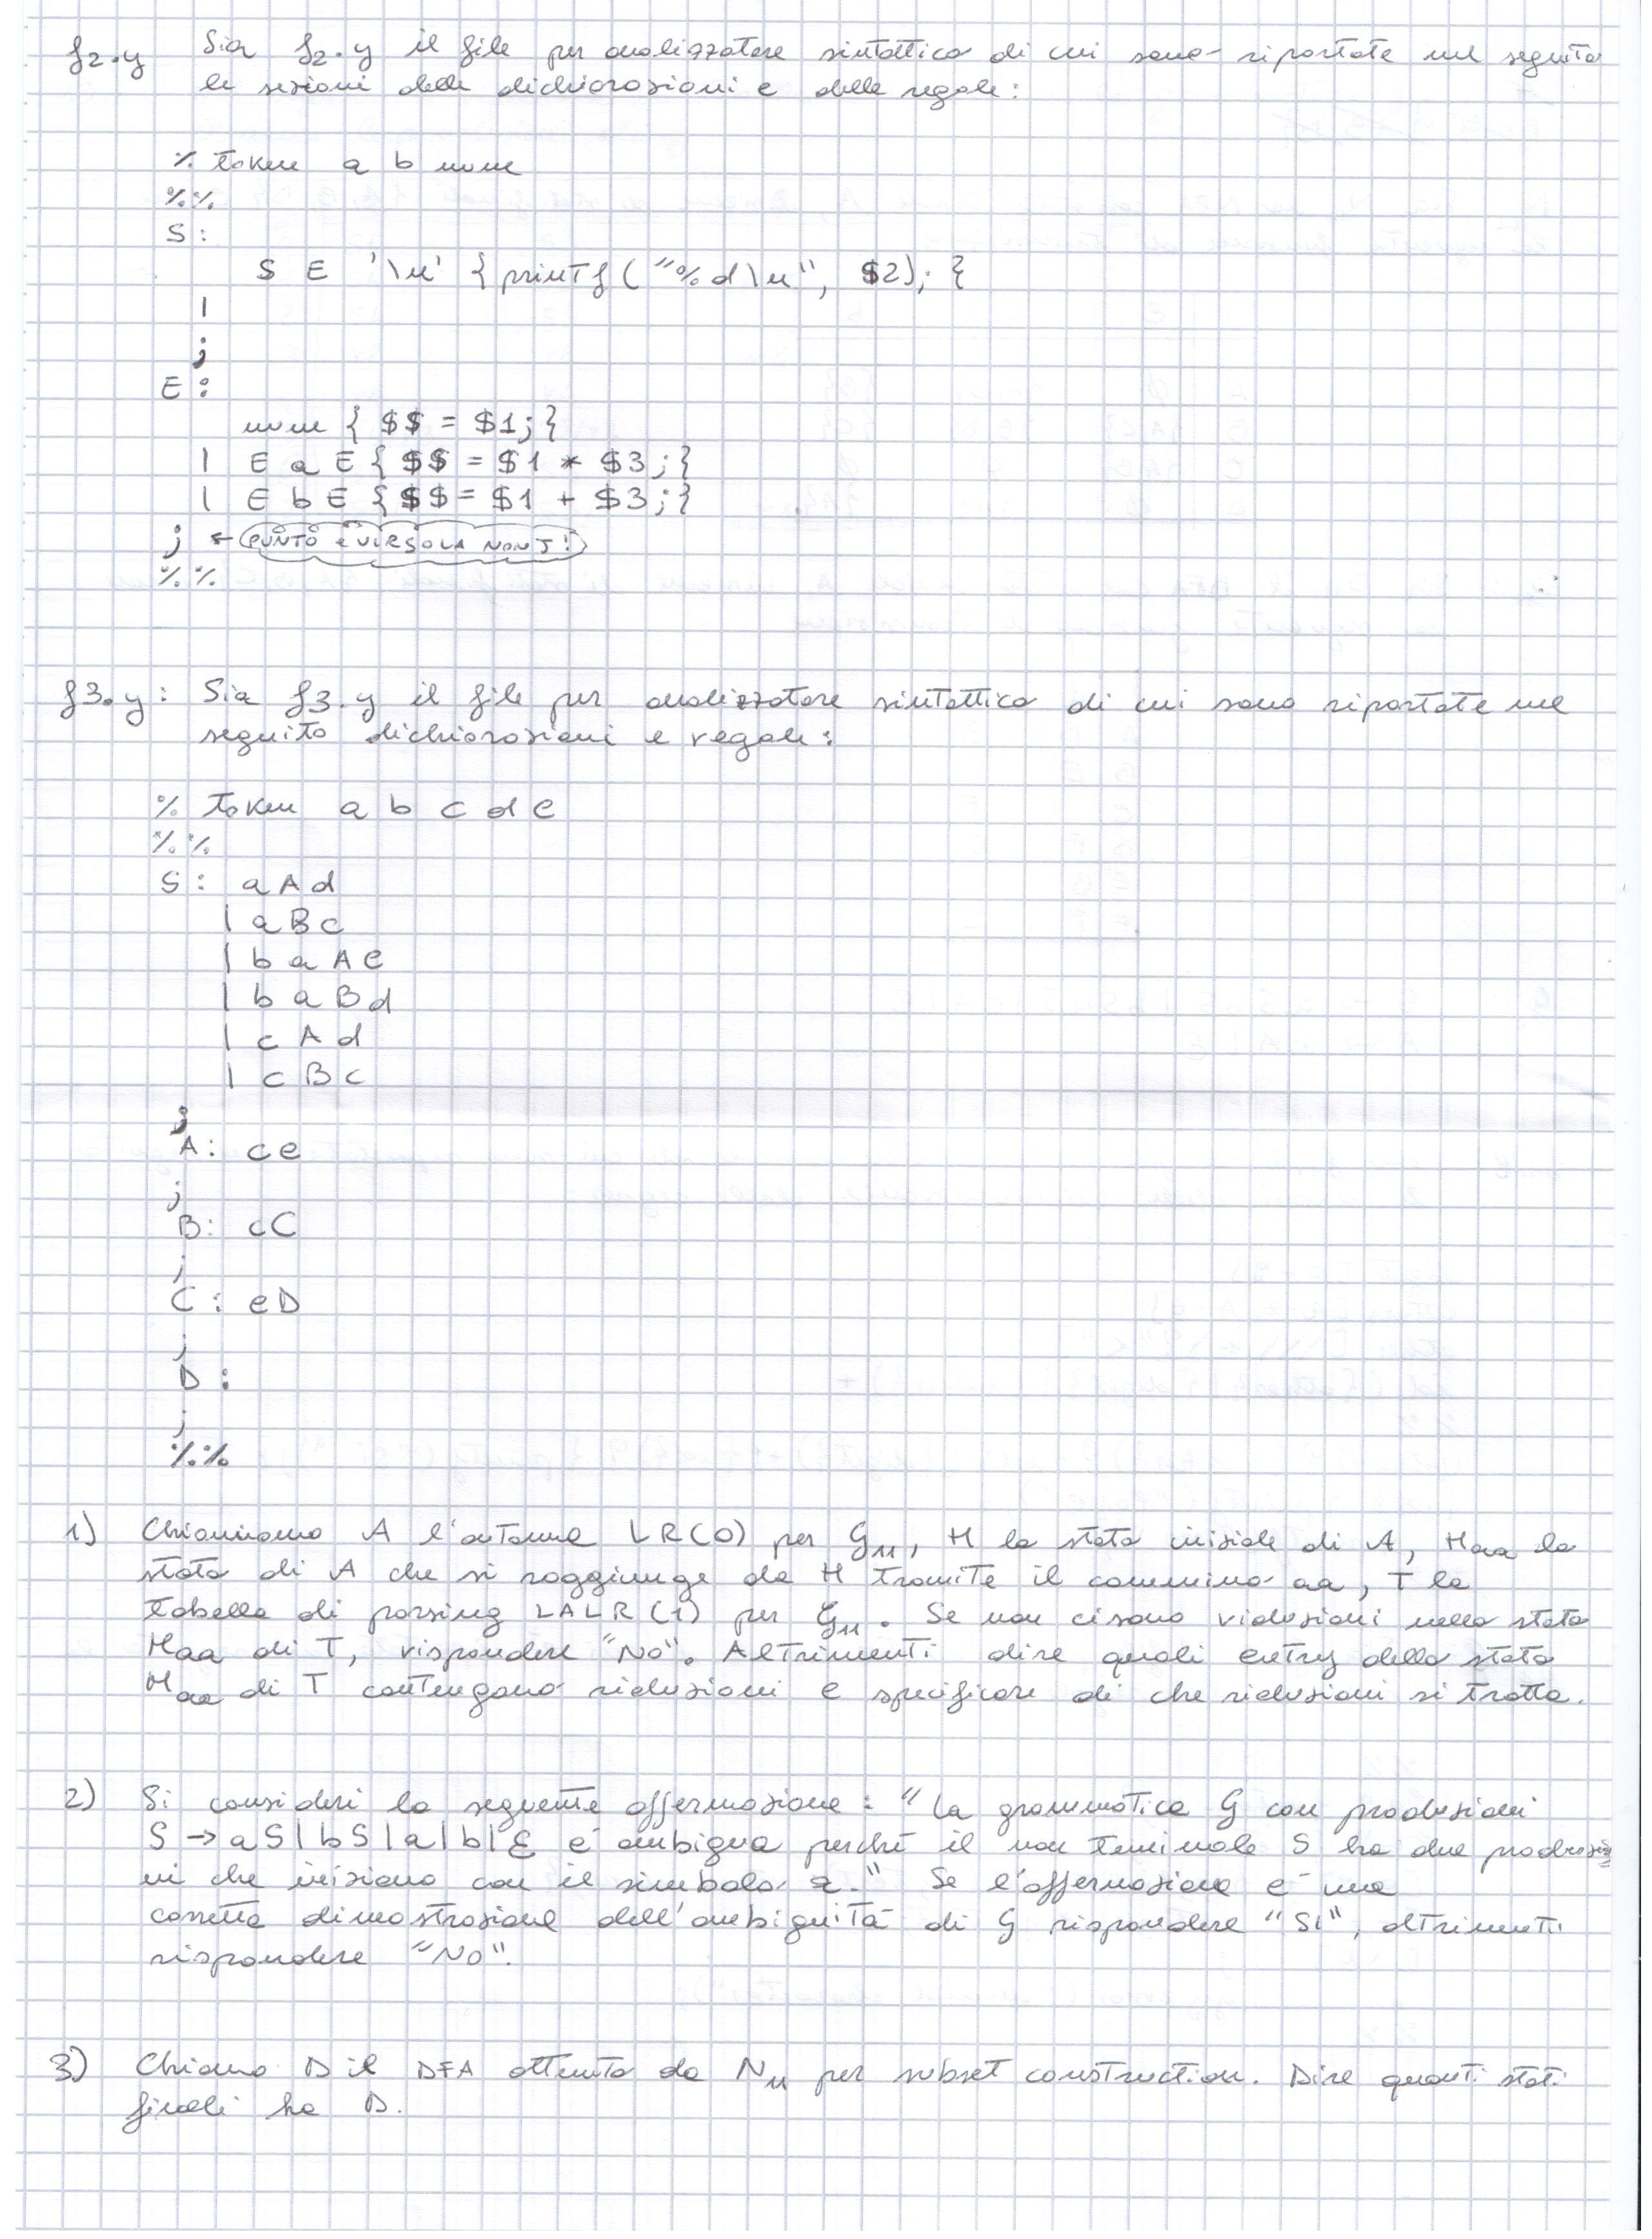 f2.y Sia f2.y il file per analizzatore sintattico di cui sono riportate nel seguito
le sezioni delle dichiarazioni e delle regole:
% token a b num
%%
S:
S E '\n' { printf ("%d\n", $2); {
|
;
E:
num { $$ = $1; }
| E a E { $$ = $1 * $3; }
| E b E { $$ = $1 + $3; }
; ← PUNTO e VIRGOLA NON J!
%%
f3.y: Sia f3.y il file per analizzatore sintattico di cui sono riportate nel
seguito dichiarazioni e regole:
% token a b c d e
%%
S: a A d
| a B c
| b a A e
| b a B d
| c A d
| c B c
;
A: c e
;
B: c C
;
C: e D
;
D:
;
%%
1) Chiamiamo A l'automa LR(0) per G11, H lo stato iniziale di A, Haa lo
stato di A che si raggiunge da H tramite il cammino aa, T la
tabella di parsing LALR(1) per G11. Se non ci sono riduzioni nello stato
Haa di T, rispondere "No". Altrimenti dire quali entry dello stato
Haa di T contengano riduzioni e specificare di che riduzioni si tratta.
2) Si consideri la seguente affermazione: "La grammatica G con produzioni
S → aS | bS | a | b | ε è ambigua perché il non terminale S ha due produzio
ni che iniziano con il simbolo a." Se l'affermazione è una
corretta dimostrazione dell'ambiguità di G rispondere "SI", altrimenti
rispondere "No".
3) Chiamo D il DFA ottenuto da N11 per subset construction. Dire quanti stati
finali ha D.